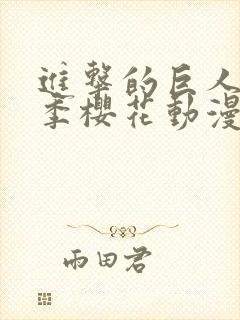 進擊的巨人
季櫻花動漫
雨田君